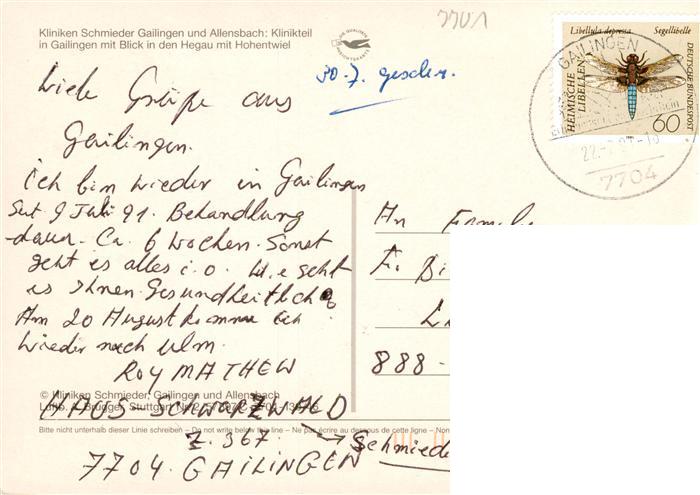 Kliniken Schmieder Gailingen und Allensbach: Klinikteil
in Gailingen mit Blick in den Hegau mit Hohentwiel
7701
30.7. geschr.
Libellula depressa Segellibelle
HEIMISCHE LIBELLEN
DEUTSCHE BUNDESPOST
60
GAILINGEN
22.-7.91-18
7704
Liebe Grüße aus
Gailingen.
Ich bin wieder in Gailingen
Seit 9 Juli 91. Behandlung
dauer Ca. 6 Wochen. Sonst
geht es alles i.o. Wie geht
es Ihnen Gesundheitlich?
Am 20 August komme ich
wieder nach Ulm.
ROY MATHEW
© Kliniken Schmieder, Gailingen und Allensbach
Luftb. A. Brugger, Stuttgart
HAUS-SCHWARZWALD
Bitte nicht unterhalb dieser Linie schreiben – Do not write below the line – Ne pas écrire au dessous de cette ligne – Non
Z. 367 → Schmieder
7704 GAILINGEN
An Familie
F. Bi
L
888-